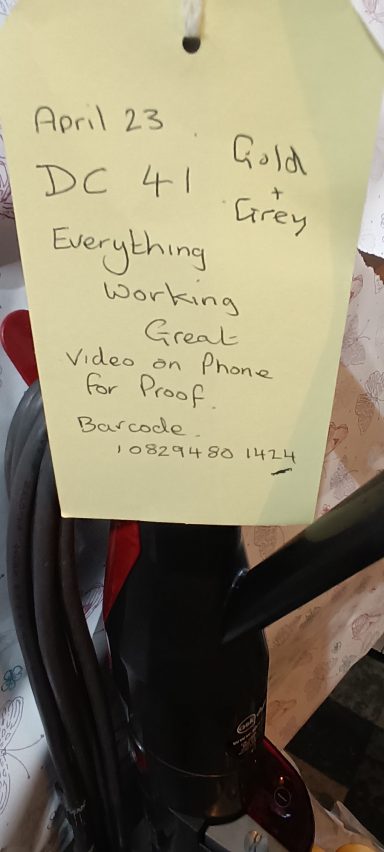 April 23
DC 41
Gold
+
Grey
Everything
Working
Great
Video on Phone
for Proof.
Barcode.
10829480 1424